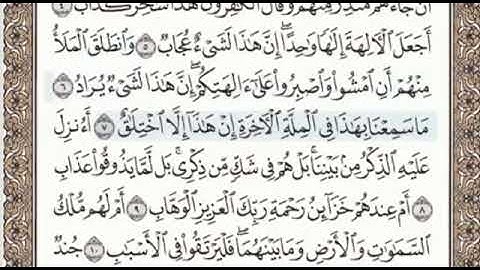 أَن جَآءَهُم مُّنذِرٌ مِّنْهُمْ وَقَالَ ٱلْكَٰفِرُونَ هَٰذَا سَٰحِرٌ كَذَّابٌ ٤
أَجَعَلَ ٱلْءَالِهَةَ إِلَٰهًا وَٰحِدًا إِنَّ هَٰذَا لَشَىْءٌ عُجَابٌ ٥ وَٱنطَلَقَ ٱلْمَلَأُ
مِنْهُمْ أَنِ ٱمْشُوا۟ وَٱصْبِرُوا۟ عَلَىٰٓ ءَالِهَتِكُمْ إِنَّ هَٰذَا لَشَىْءٌ يُرَادُ ٦
مَا سَمِعْنَا بِهَٰذَا فِى ٱلْمِلَّةِ ٱلْءَاخِرَةِ إِنْ هَٰذَآ إِلَّا ٱخْتِلَٰقٌ ٧ أَءُنزِلَ
عَلَيْهِ ٱلذِّكْرُ مِنۢ بَيْنِنَا بَلْ هُمْ فِى شَكٍّ مِّن ذِكْرِى بَل لَّمَّا يَذُوقُوا۟ عَذَابِ
٨ أَمْ عِندَهُمْ خَزَآئِنُ رَحْمَةِ رَبِّكَ ٱلْعَزِيزِ ٱلْوَهَّابِ ٩ أَمْ لَهُم مُّلْكُ
ٱلسَّمَٰوَٰتِ وَٱلْأَرْضِ وَمَا بَيْنَهُمَا فَلْيَرْتَقُوا۟ فِى ٱلْأَسْبَٰبِ ١٠ جُندٌ